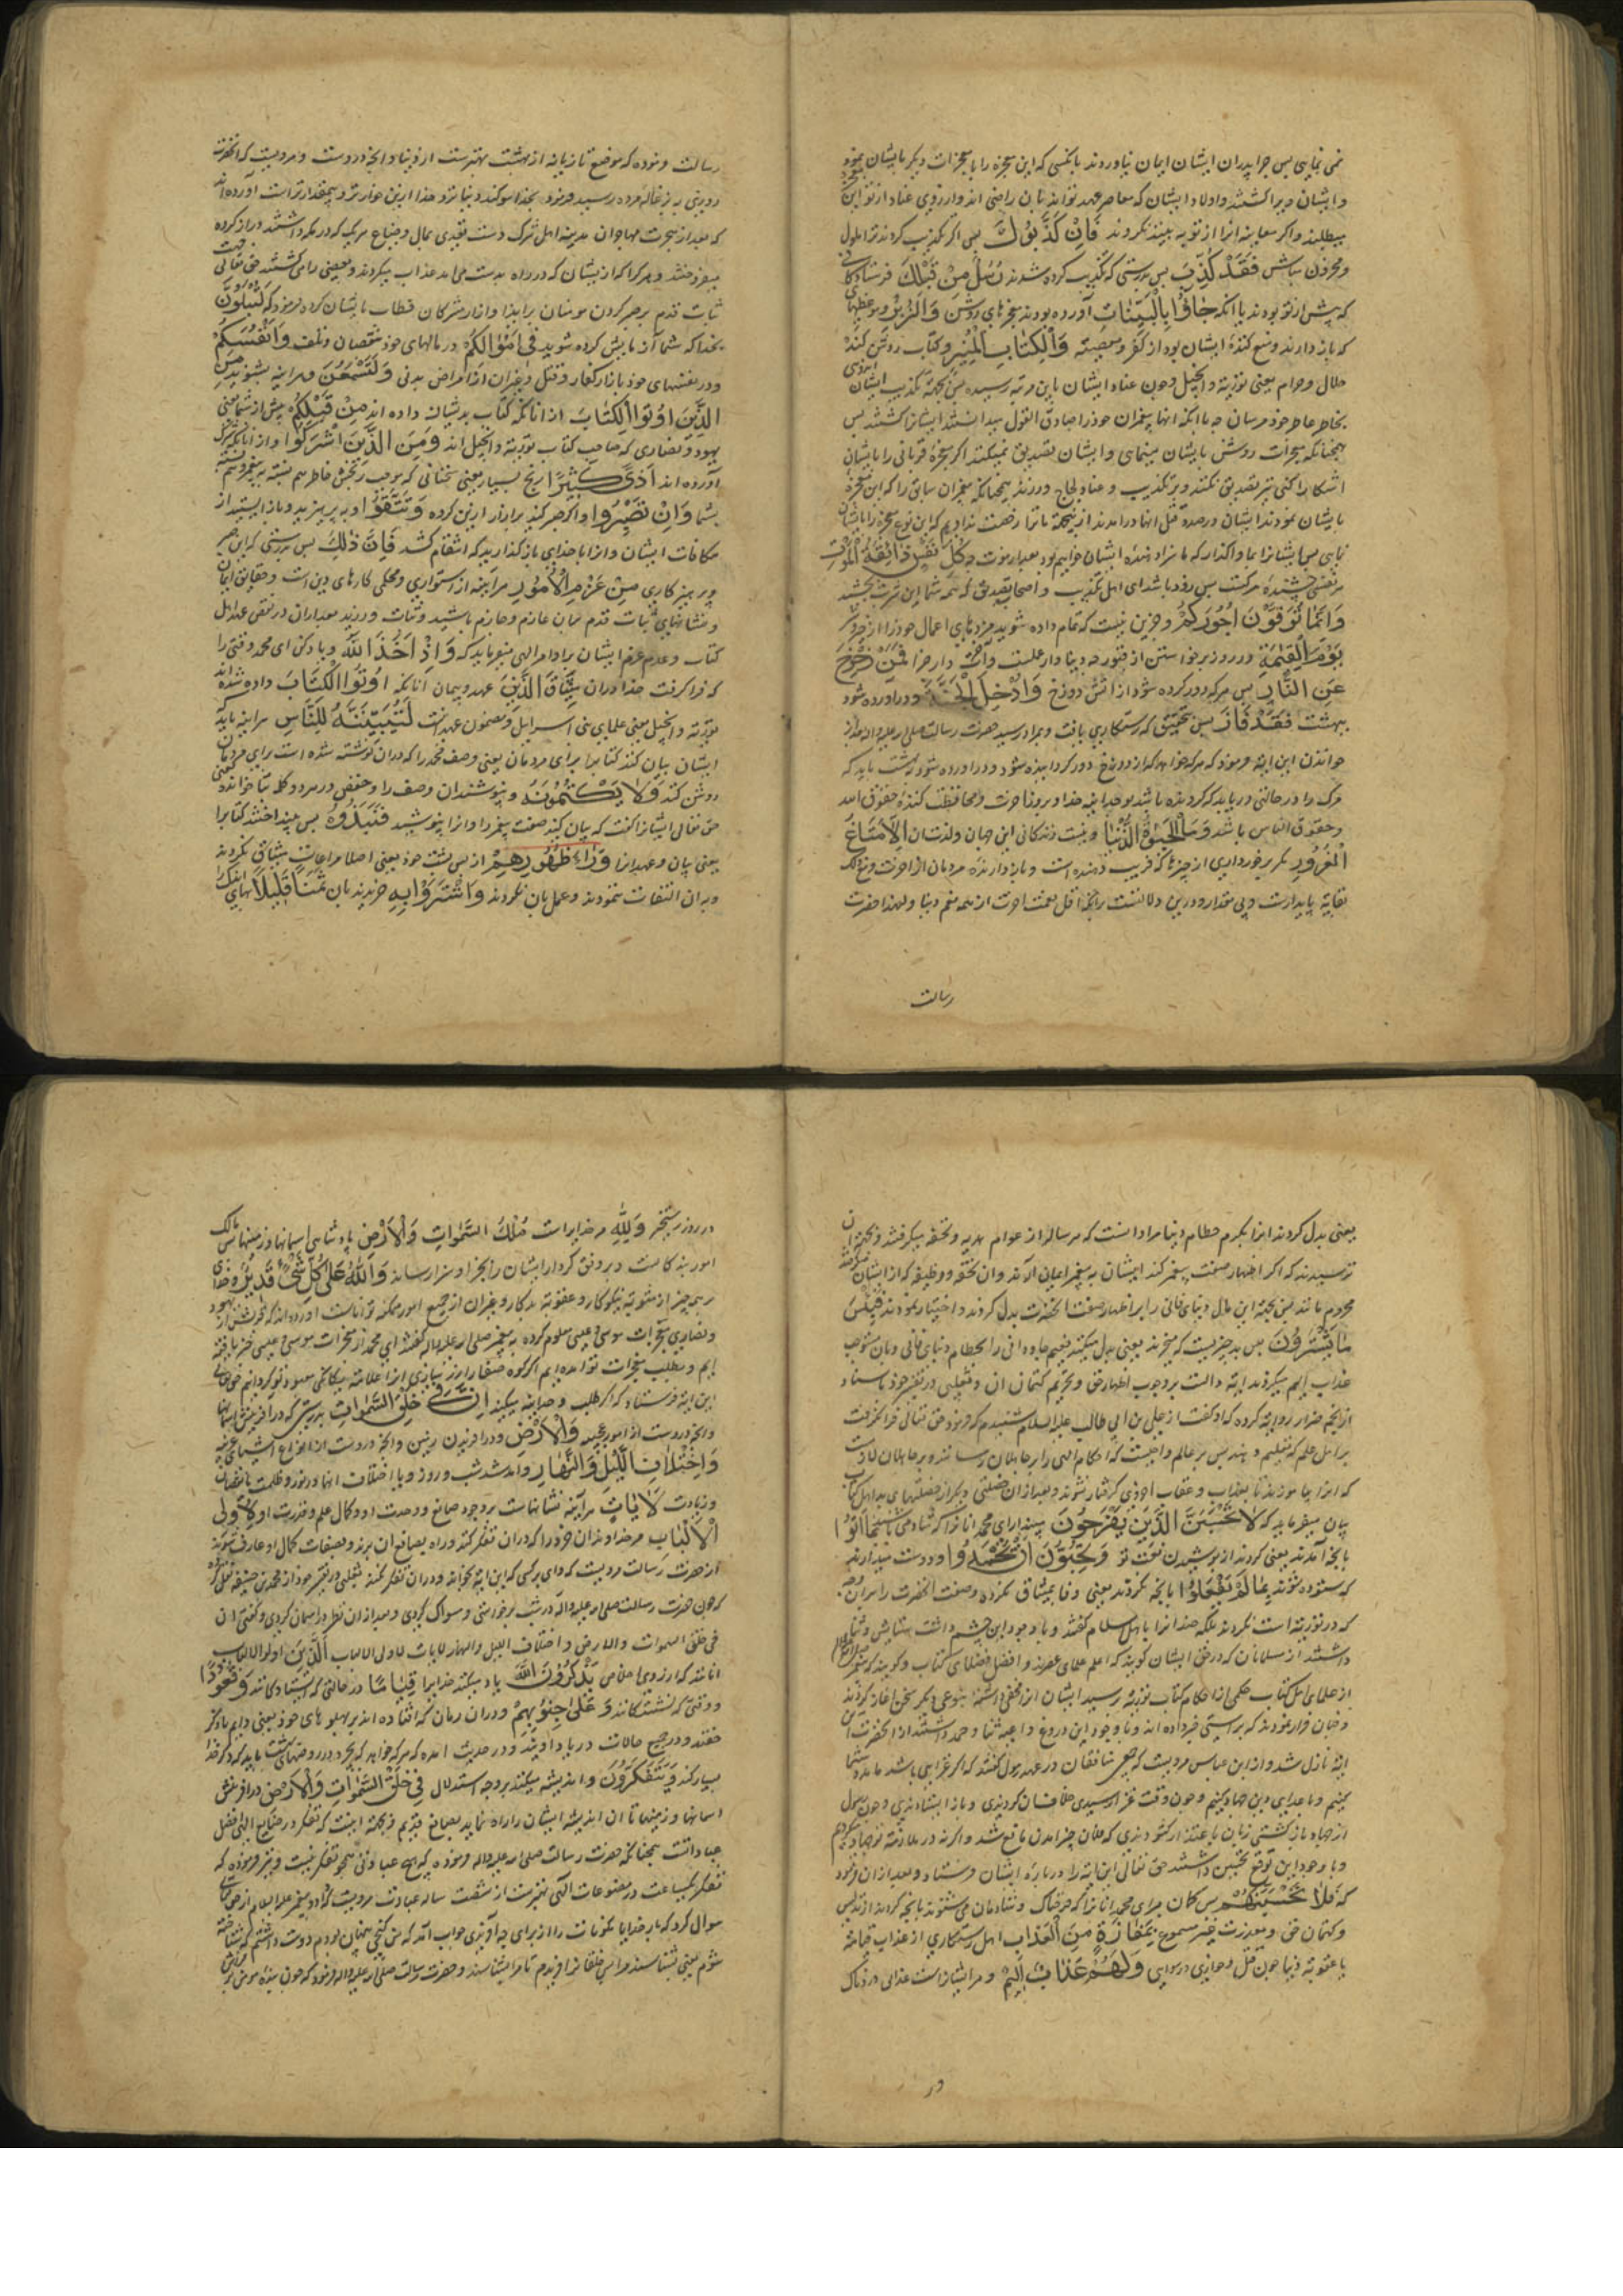 نمی نمایی پس چرا پدران ایشان ایمان نیاوردند بانکسی که این معجزه را با معجزات دیکر بایشان نمود
و ایشان ویرا کشتند و اولاد ایشان که معاصر عهد تواند بآن راضی اند و از روی عناد از تو این
میطلبند و اکر معاینه انرا از تو به بینند نکروند فَاِنْ كَذَّبُوكَ پس اکر تکذیب کردند ترا ملول
و محزون مباش فَقَدْ كُذِّبَ پس بدرستی که تکذیب کرده شدند رُسُلٌ مِنْ قَبْلِكَ فرستادکانی
که پیش از تو بودند با آنکه جَاؤُا بِالْبَيِّنَاتِ آورده بودند معجزهای روشن وَالزُّبُرِ و موعظهای
که باز دارنده و منع کننده ایشان بود از کفر و معصیة وَالْكِتَابِ الْمُنِيرِ و کتاب روشن کننده
حلال و حرام یعنی توریة و انجیل و چون عناد ایشان باین مرتبه رسیده پس بجهة تکذیب ایشان
بخاطر عاطر خود مرسان چه با آنکه انها پیغمبران خود را صادق القول میدانستند ایشانرا کشتند پس
همچنانکه معجزات روشن بایشان مینمای و ایشان تصدیق نمیکنند اکر معجزه قربانی را بایشان
اشکارا کنی نیز تصدیق نکنند و بر تکذیب و عناد و لجاج ورزند همچنانکه پیغمبران سابق را که این معجزه
بایشان نمودند ایشان درصدد قتل انها درامدند ازینجهة ما ترا رخصت ندادیم که این نوع معجزه را بایشان
نمایی پس ایشانرا بما واکذار که ما سزا دهنده ایشان خواهیم بود بعد از موت كُلُّ نَفْسٍ ذَائِقَةُ الْمَوْتِ
هر نفسی چشنده مرکست پس زود باشد ای اهل تکذیب و اصحاب تصدیق که همه شما این شربت بچشند
وَاِنَّمَا تُوَفَّوْنَ اُجُورَكُمْ و جزین نیست که تمام داده شوید مزدهای اعمال خود را از خیر و شر
يَوْمَ الْقِيمَةِ در روز برخواستن از قبور چه دنیا دار عملست و آخرت دار جزا فَمَنْ زُحْزِحَ
عَنِ النَّارِ پس هر که دور کرده شود از اتش دوزخ وَاُدْخِلَ الْجَنَّةَ و دراورده شود
ببهشت فَقَدْ فَازَ پس بتحقیق که رستکاری یافت و بمراد رسید حضرت رسالت صلی الله علیه و اله بعد از
خواندن این ایة فرمود که هر که خواهد که از دوزخ دور کردانیده شود و دراورده شود ببهشت باید که
مرک را در حالتی دریابد که کرونده باشد بوحدانیة خدا و بروز اخرت و محافظت کننده حقوق الله
و حقوق الناس باشد وَمَا الْحَيٰوةُ الدُّنْيَا و نیست زندکانی این جهان و لذتشان اِلَّا مَتَاعُ
الْغُرُورِ مکر برخورداری از چیزها که فریب دهنده است و باز دارنده مردمان از اخرت و مع ذلک
بغایة ناپایدارست و بی مقدار و درین دلالتست بر آنکه اقل نعمت اخرت از همه نعم دنیا و لهذا حضرت
رسالت
رسالت فرموده که موضع تازیانه از بهشت بهترست از دنیا و آنچه دروست و مرویست که انحضرت
روزی به بزغاله مرده رسید فرمود بخدا سوکند که دنیا نزد خدا ازین خوارتر و بیمقدارتر است آورده اند
که بعد از هجرت مهاجران بمدینه اهل شرک دست تعدی بمال و ضیاع هر یک که در مکه داشتند دراز کرده
میفروختند و هر کرا که از ایشان که در راه بدست می‌امد عذاب میکردند و بعضی را می‌کشتند حق تعالی جهت
ثبات قدم بر صبر کردن مومنان بر ایذا و ازار مشرکان خطاب بایشان کرده فرمود که لَتُبْلَوُنَّ
بخدا که شما آزمایش کرده شوید فِي اَمْوَالِكُمْ در مالهای خود بنقصان و تلف وَاَنْفُسِكُمْ
و در نفسهای خود بازار کفار و قتل و غیر ان از امراض بدنی وَلَتَسْمَعُنَّ و هراینه بشنوید مِنَ
الَّذِينَ اُوتُوا الْكِتَابَ از انانکه کتاب بدیشان داده اند مِنْ قَبْلِكُمْ پیش از شما یعنی
یهود و نصاری که صاحب کتاب توریة و انجیل اند وَمِنَ الَّذِينَ اَشْرَكُوا و از انانکه شرک
آورده اند اَذًى كَثِيرًا رنج بسیار یعنی سخنانی که موجب رنجش خاطر هم نسبة به پیغمبر و هم نسبة
بشما وَاِنْ تَصْبِرُوا و اکر صبر کنید بر ازار ازین کرده وَتَتَّقُوا و بپرهیزید و باز ایستید از
مکافات ایشان و انرا بخدای باز کذارید که انتقام کشد فَاِنَّ ذٰلِكَ پس بدرستی که این صبر
و پرهیزکاری مِنْ عَزْمِ الْاُمُورِ هراینه از استواری و محکمی کارهای دین است و حقایق ایمان
و نشانهای ثبات قدم بران عازم و جازم باشید و ثبات ورزید بعد از ان در نقض عهد اهل
کتاب و عدم عزم ایشان بر اوامر الهی میفرماید که وَاِذْ اَخَذَ اللّٰهُ و یاد کن ای محمد وقتی را
که فرا کرفت خدا دران مِيثَاقَ الَّذِينَ عهد و پیمان آنانکه اُوتُوا الْكِتَابَ داده شده اند
توریة و انجیل یعنی علمای بنی اسرایل و مضمون عهد انست لَتُبَيِّنُنَّهُ لِلنَّاسِ هراینه باید که
ایشان بیان کنند کتابرا برای مردمان یعنی وصف محمد را که دران نوشته شده است برای مردمان
روشن کند وَلَا يَكْتُمُونَهُ و نپوشند ان وصف را و حفص در هر دو کلمه بتا خوانده یعنی
حق تعالی ایشانرا کفت که بیان کنید صفت پیغمبر را و انرا نپوشید فَنَبَذُوهُ پس بینداختند کتابرا
یعنی بیان و عهد انرا وَرَاءَ ظُهُورِهِمْ از پس پشت خود یعنی اصلا مراعات میثاق نکردند
و به ان التفات ننمودند و عمل بان نکردند وَاشْتَرَوْا بِهِ خریدند بان ثَمَنًا قَلِيلًا بهای اندک
یعنی بدل کردند انرا بکرم حطام دنیا مراد انست که هر سال از عوام هدیه و تحفه میکرفتند و بجهة ان
ترسیدند که اکر اظهار صفت پیغمبر کنند ایشان به پیغمبر ایمان آرند و ان تحفه و وظیفه که از ایشان میکرفتند
محروم مانند پس بجهة این مال دنیای فانی را بر اظهار صفت انحضرت بدل کردند و اختیار نمودند فَبِئْسَ
مَا يَشْتَرُونَ پس بد چیزیست که میخرند یعنی بدل میکنند نعیم جاودانی را بحطام دنیای فانی و بان مستوجب
عذاب الیم میکردند ایة دالست بر وجوب اظهار حق و تحریم کتمان ان و ثعلبی در تفسیر خود باسناد
از ابو حمزه روایة کرده که او کفت از علی بن ابی طالب علیه السلام شنیدم که فرمود حق تعالی فرا نکرفت
بر اهل علم که تعلیم دهند پس بر عالم واجبست که احکام الهی را بر جاهلان رسانند و بر جاهلان لازمست
که انرا بیاموزند تا بعذاب و عقاب اخروی کرفتار نشوند و بعد از ان خصلتی دیکر از خصلتهای بد اهل کتاب
بیان میفرماید که لَا تَحْسَبَنَّ الَّذِينَ يَفْرَحُونَ مپندار ای محمد انانرا که شادمی باشند بِمَا اَتَوْا
بانچه آمدند یعنی کردند از پوشیدن نعت تو وَيُحِبُّونَ اَنْ يُحْمَدُوا و دوست میدارند
که ستوده شوند بِمَا لَمْ يَفْعَلُوا بانچه نکردند یعنی وفا بمیثاق نکرده و صفت انحضرت را بر ان وجه
که در توریة است نکردند بلکه ضد انرا باهل اسلام کفتند و با وجود این چشم داشت ستایش و ثنا
داشتند از مسلمانان که در حق ایشان کویند که اعلم علمای عصرند و افضل فضلای کتاب و کویند که پیغمبر صلی الله علیه
از علمای اهل کتاب حکمی از احکام کتاب توریة پرسید ایشان انرا مخفی داشته بنوعی دیکر سخن اغاز کردند
و چنان وانمودند که براستی خبر داده اند و با وجود این دروغ داعیه ثنا و حمد داشتند از انحضرت این
ایة نازل شد و از ابن عباس مرویست که جمعی منافقان در عهد رسول کفتند که اکر غزایی باشد ما با شما
بیاییم و با اعدای دین جهاد کنیم و چون وقت غزا رسیدی خلاف ان کردندی و باز ایستادندی و چون رسول
از جهاد باز کشتی زبان باعتذار کشودندی که فلان چیز امدن مانع شد و اکرنه در ملازمة تو جهاد میکردیم
و با وجود این توقع تحسین داشتند حق تعالی این ایة را درباره ایشان فرستاد و بعد از ان فرمود
که فَلَا تَحْسَبَنَّهُمْ پس کمان مبر ای محمد انانرا که فرحناک و شادمان می‌شوند بانچه کردند از تدلیس
و کتمان حق و بمعذرت غیر مسموع بِمَفَازَةٍ مِنَ الْعَذَابِ اهل رستکاری از عذاب قیامة
یا عقوبة دنیا چون قتل و خواری و رسوایی وَلَهُمْ عَذَابٌ اَلِيمٌ و مر ایشانراست عذابی دردناک
در
در روز رستخیز وَلِلّٰهِ مر خدایراست مُلْكُ السَّمٰوَاتِ وَالْاَرْضِ پادشاهی اسمانها و زمینها پس مالک
امور بندکانست بر وفق کردار ایشان را بجزا و سزا رساند وَاللّٰهُ عَلَى كُلِّ شَيْءٍ قَدِيرٌ و خدای
بر همه چیز از مثوبة نیکوکار و عقوبة بدکار و غیر ان از جمیع امور ممکنه تواناست آورده اند که قریش از یهود
و نصاری معجزات موسی و عیسی معلوم کرده به پیغمبر صلی الله علیه و اله کفتند ای محمد از معجزات موسی و عیسی خبر یافته
ایم و بطلب معجزات تو آمده ایم اکر کوه صفا را از زر سازی انرا علامة یکانکی معبود تو کردانیم حق تعالی
این ایة فرستاد که اکر طلب وحدانیة میکنند اِنَّ فِي خَلْقِ السَّمٰوَاتِ بدرستی که در آفرینش اسمانها
و انچه دروست از امور عجیبه وَالْاَرْضِ و در افریدن زمین و انچه دروست از انواع اشیای غریبه
وَاخْتِلَافِ اللَّيْلِ وَالنَّهَارِ و آمد شد شب و روز و یا اختلاف انها در نور و ظلمت یا نقصان
و زیادت لَاٰيَاتٍ هراینه نشانهاست بر وجود صانع و وحدت او و کمال علم و قدرت او لِاُولِي
الْاَلْبَابِ مر خداوندان خرد را که دران تفکر کنند و راه بصانع ان برند و بصفات کمال او عارف شوند
از حضرت رسالت مرویست که وای بر کسی که این ایة بخواند و دران تفکر نکند ثعلبی در تفسیر خود از محمد بن حنیفه نقل کرده
که چون حضرت رسالت صلی الله علیه و اله در شب برخواستی و مسواک کردی و بعد از ان نظر در اسمان کردی و کفتی ان
فی خلق السموات والارض و اختلاف اللیل والنهار لایات لاولی الالباب اَلَّذِينَ اولو الالباب
انانند که از روی اخلاص يَذْكُرُونَ اللّٰهَ یاد میکنند خدایرا قِيَامًا در حالتی که ایستادکانند وَقُعُودًا
و وقتی که نشستکانند وَعَلَى جُنُوبِهِمْ و دران زمان که افتاده اند بر پهلوهای خود یعنی دایم با ذکر
حقند و در جمیع حالات در یاد اویند و در حدیث امده که هر که خواهد که بچرد در روضهای بهشت باید که ذکر خدا
بسیار کند وَيَتَفَكَّرُونَ و اندیشه میکنند بر وجه استدلال فِي خَلْقِ السَّمٰوَاتِ وَالْاَرْضِ در افرینش
اسمانها و زمینها تا ان اندیشه ایشان را راه نماید بصانع قدیم و بجهة اینست که تفکر در صنایع الهی افضل
عباداتست همچنانکه حضرت رسالت صلی الله علیه و اله فرموده که هیچ عبادتی همچو تفکر نیست و نیز فرموده که
تفکر یکساعت در مصنوعات آلهی بهترست از شصت ساله عبادت مرویست که داود پیغمبر علیه السلام از حق تعالی
سوال کرد که بار خدایا مکونات را از برای چه آفریدی جواب آمد که من کنجی پنهان بودم دوست داشتم که شناخته
شوم یعنی بشناسند مرا پس خلقانرا افریدم تا مرا بشناسند و حضرت رسالت صلی الله علیه و اله فرمود که چون بنده مومن